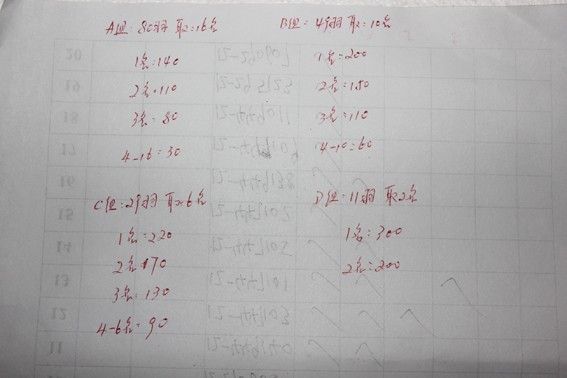 A组=80羽 取=16名
1名=140
2名=110
3名=80
4-16=30
B组=49羽 取=10名
1名=200
2名=150
3名=110
4-10=60
C组=29羽 取=6名
1名=220
2名=170
3名=130
4-6名=90
D组=11羽 取2名
1名=300
2名=200
20
19
18
17
16
15
14
13
12
11